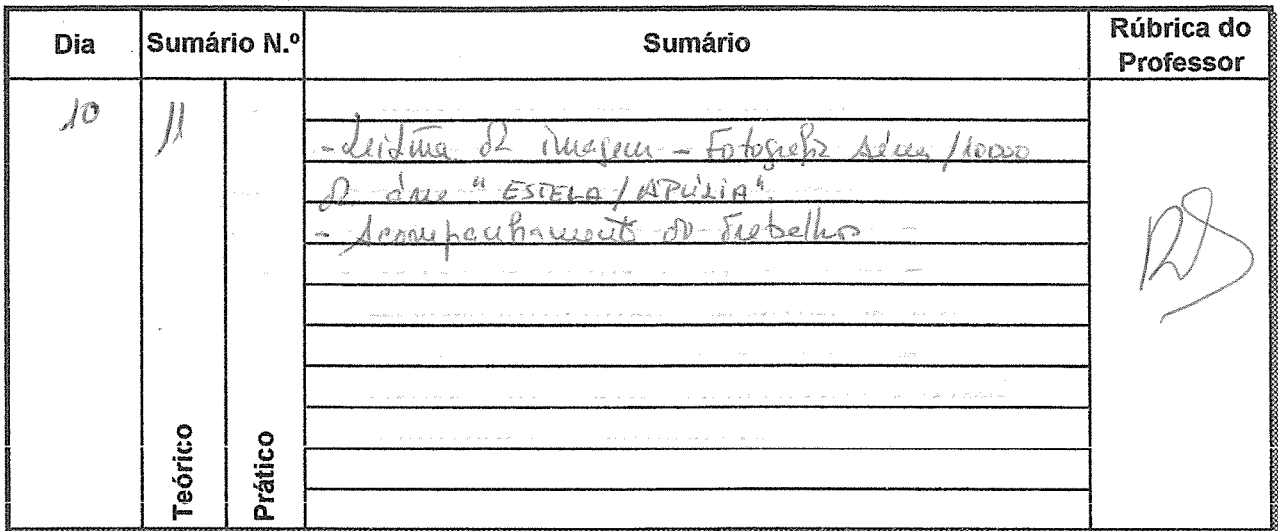 Dia Sumário N.º Sumário Rúbrica do Professor
10 11
- Leitura de imagem - Fotografia Aérea /10000
da área "ESTELA / APÚLIA"
- Acompanhamento do Trabalho
Teórico Prático